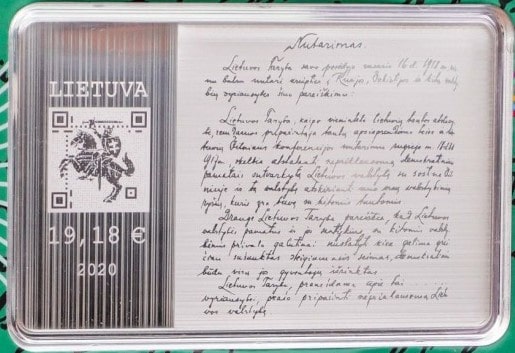 LIETUVA
19,18 €
2020
Nutarimas.
Lietuvos Taryba savo posėdyje vasario 16 d. 1918 m. vi-
nu balsu nutarė kreiptis į Rusijos, Vokietijos ir kitų vals-
bių vyriausybes šiuo pareiškimu:
Lietuvos Taryba, kaipo vienintelė lietuvių tautos atstovy-
bė, remdamos pripažintąja tautų apsisprendimo teise ir
Vilniaus konferencijos nutarimu rugsėjo m. 18-23
d. 1917 m., skelbia atstatanti nepriklausomą, demokratiniais
pamatais sutvarkytą Lietuvos valstybę su sostine
Vilniuje ir tą valstybę atskirianti nuo visų valstybinių
ryšių, kurie yra buvę su kitomis tautomis.
Drauge Lietuvos Taryba pareiškia, kad Lietuvos
valstybės pamatus ir jos santykius su kitomis valsty-
bėmis privalo galutinai nustatyti kiek galima grei-
čiau sušauktas steigiamasis seimas, demokratiniu
būdu visų jos gyventojų išrinktas.
Lietuvos Taryba, pranešdama apie tai
vyriausybei, prašo pripažinti nepriklausomą Lie-
tuvos valstybę.